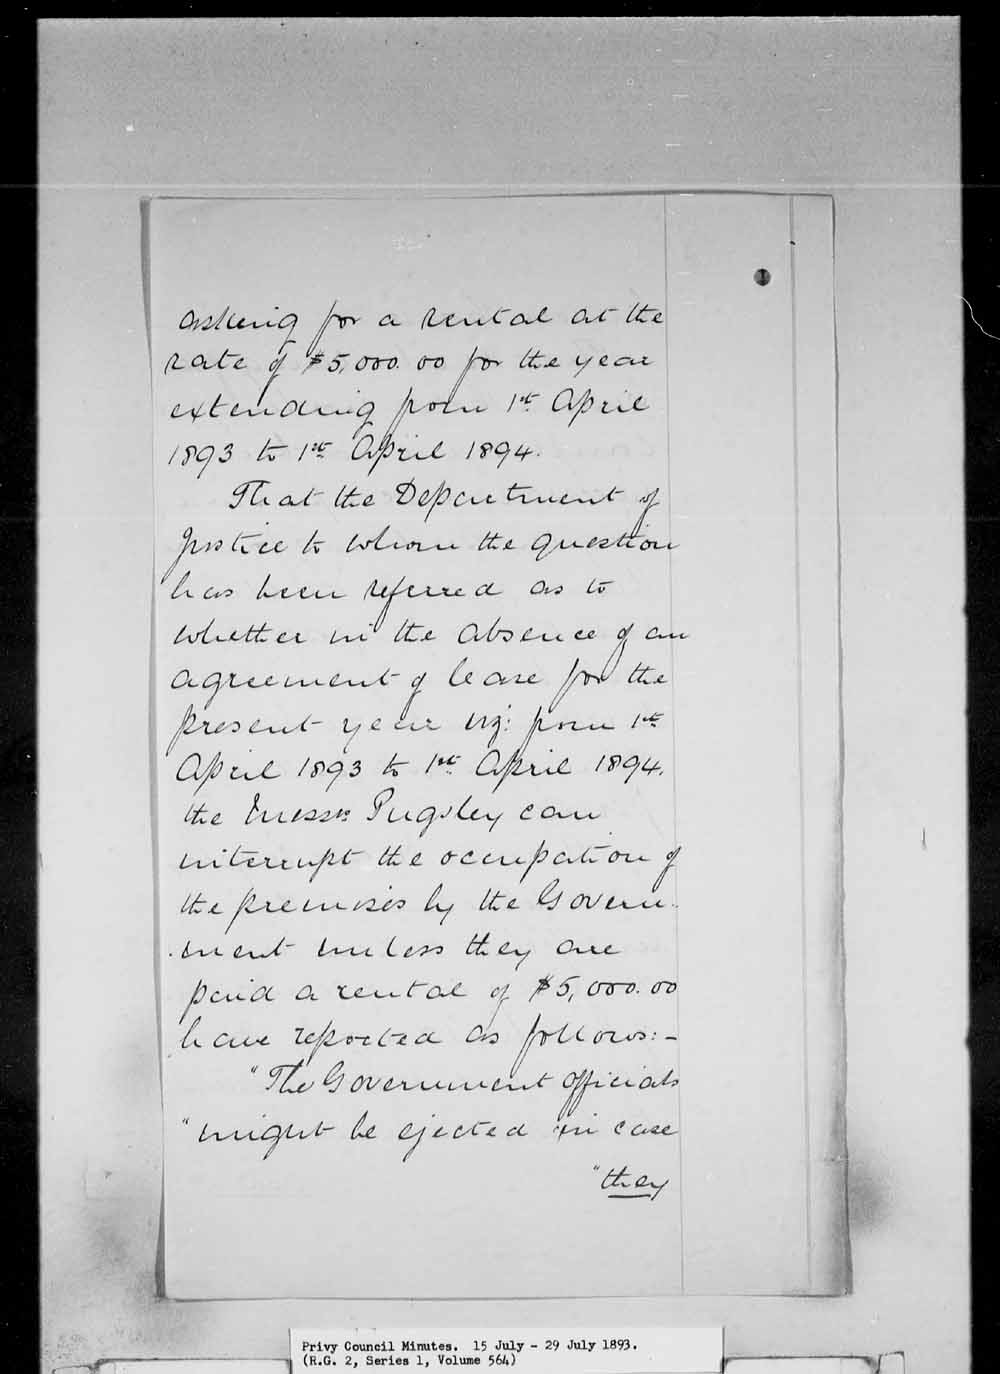 asking for a rental at the
rate of $5,000.00 for the year
extending from 1st April
1893 to 1st April 1894.
That the Department of
Justice to whom the question
has been referred as to
whether in the absence of an
agreement of lease for the
present year viz: from 1st
April 1893 to 1st April 1894,
the Messrs Pugsley can
interrupt the occupation of
the premises by the Govern-
-ment unless they are
paid a rental of $5,000.00
have reported as follows:-
"The Government officials
"might be ejected in case
"they
Privy Council Minutes. 15 July - 29 July 1893.
(R.G. 2, Series 1, Volume 564)